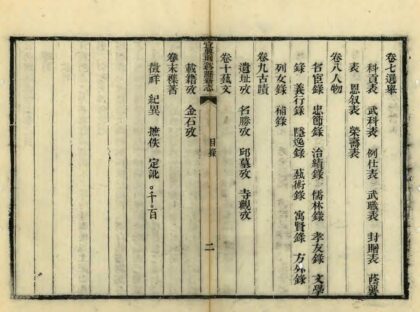 卷七選舉
科貢表 武科表 例仕表 武職表 封贈表 蔭襲
表 恩叙表 榮壽表
卷八人物
名宦錄 忠節錄 治績錄 儒林錄 孝友錄 文學
錄 義行錄 隱逸錄 藝術錄 寓賢錄 方外錄
列女錄 補錄
卷九古蹟
遺址攷 名勝攷 邱墓攷 寺觀攷
卷十藝文
目錄
二
載籍攷 金石攷
卷末雜著
徵祥 紀異 摭佚 定訛